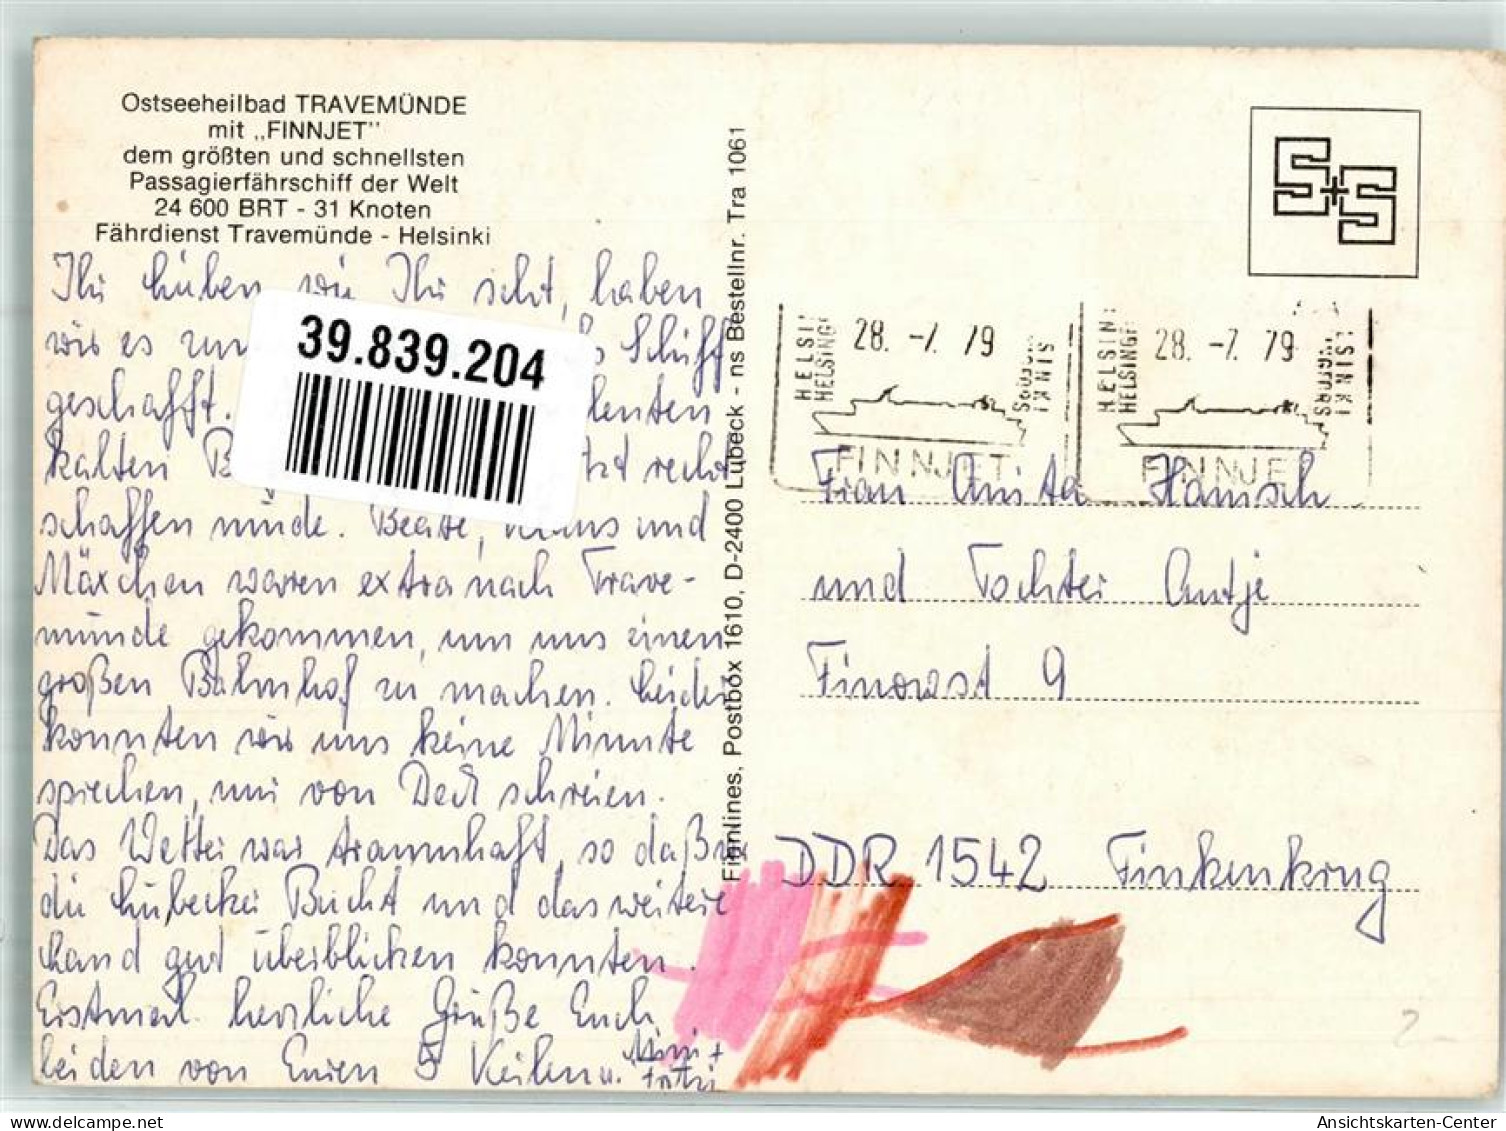 Ostseeheilbad TRAVEMÜNDE
mit „FINNJET"
dem größten und schnellsten
Passagierfährschiff der Welt
24 600 BRT - 31 Knoten
Fährdienst Travemünde - Helsinki
Ihr Lieben, wie Ihr seht, haben
wir es Schiff
geschafft.
kalten recht
schaffen müde. Beate, Klaus und
Mäxchen waren extra nach Trave-
münde gekommen, um uns einen
großen Bahnhof zu machen. Leider
konnten wir uns keine Minute
sprechen, nur von Deck schreien.
Das Wetter war traumhaft, so daß wir
die Lübecker Bucht und das weitere
Land gut überblicken konnten.
Erstmal herzliche Grüße Euch
beiden von Euren 5 Keilen u. Mimi +
39.839.204
Finnlines, Postbox 1610, D-2400 Lübeck - ns Bestellnr. Tra 1061
S+S
28. -7. 79
FINNJET
28. -7. 79
FINNJET
Frau Anita Hamsch
und Tochter Antje
Finowst 9
DDR 1542 Finkenkrug
Ansichtskarten-Center